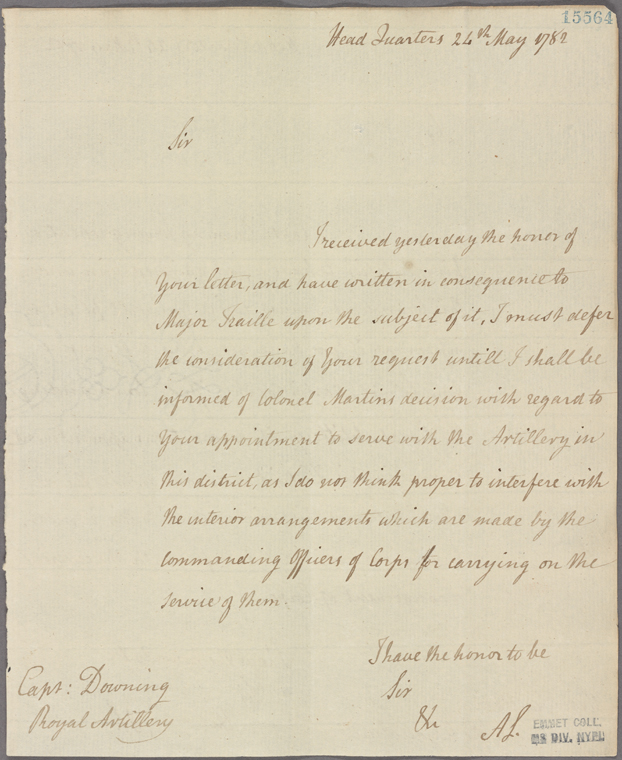 15564
Head Quarters 24th May 1782
Sir
I received yesterday the honor of
Your letter, and have written in consequence to
Major Traille upon the subject of it, I must defer
the consideration of Your request untill I shall be
informed of Colonel Martins decision with regard to
Your appointment to serve with the Artillery in
this district, as I do not think proper to interfere with
the interior arrangements which are made by the
commanding Officers of Corps for carrying on the
service of them.
I have the honor to be
Sir
&c
AL.
Capt: Downing
Royal Artillery
EMMET COLL.
MS DIV. NYPL